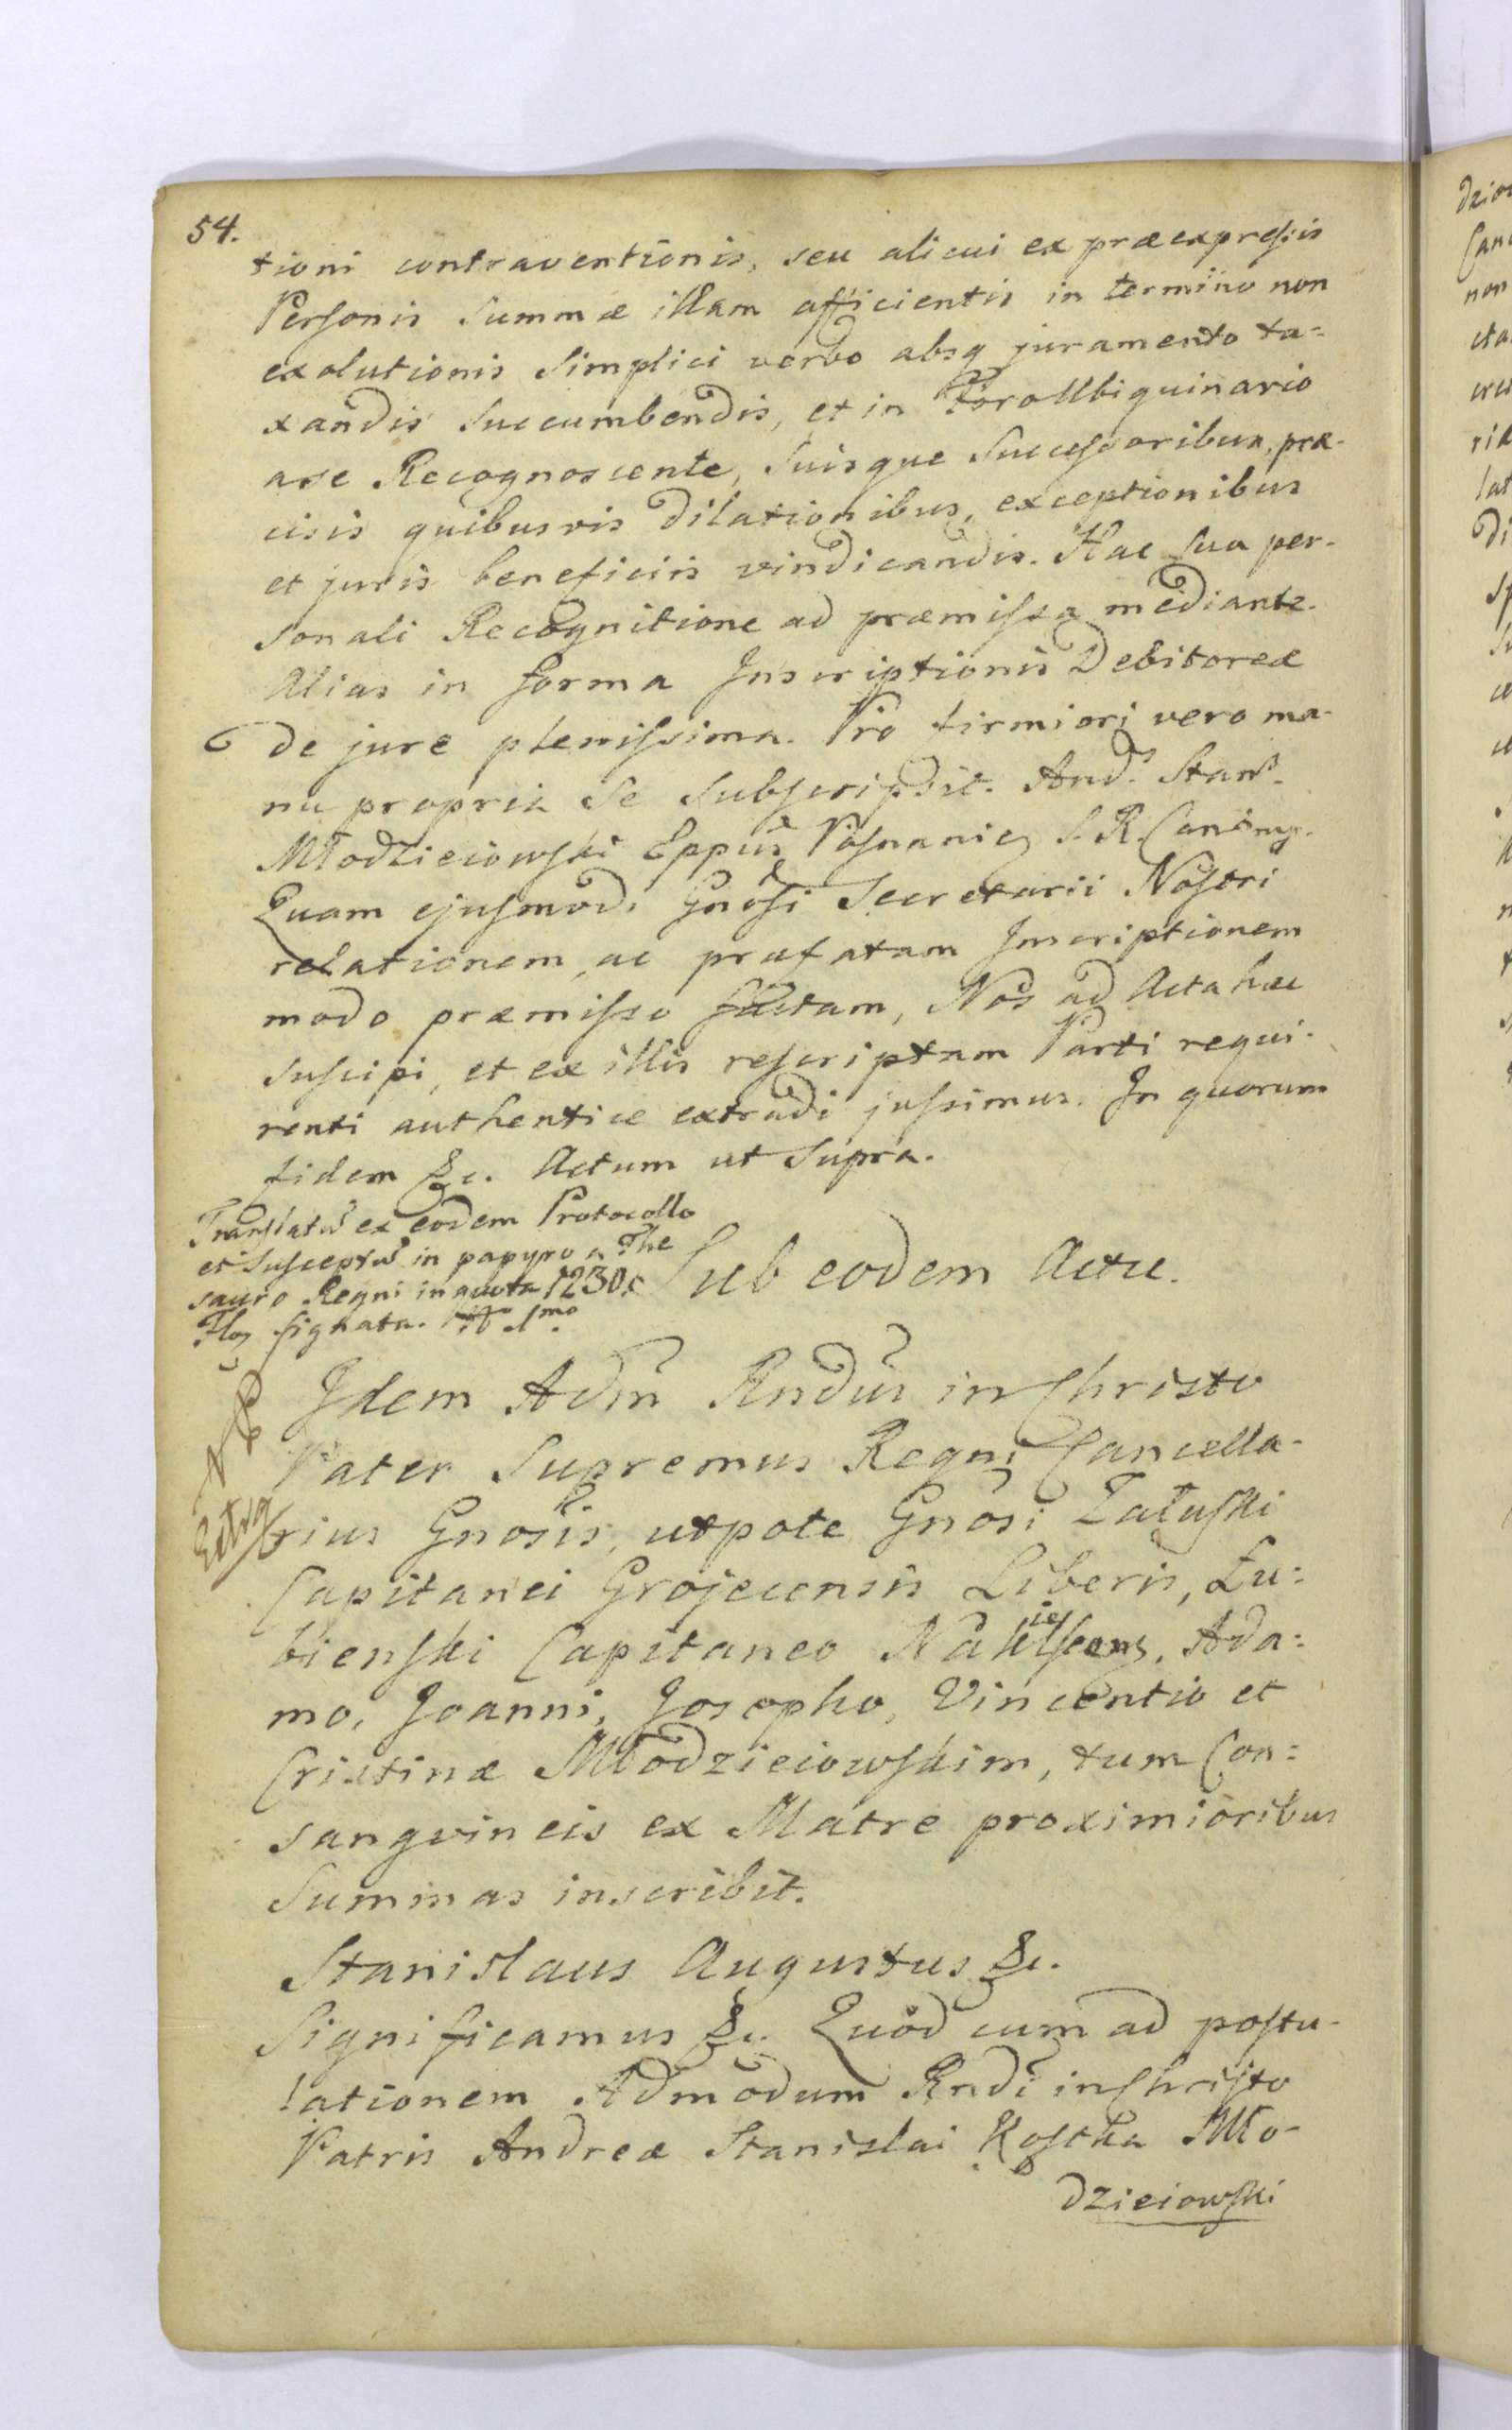 54.
tioni contraventionis, seu alicui ex præexpressis
Personis Summæ illam afficientis in termino non
exolutionis Simplici verbo absq juramento ta=
xandis Succumbendis, et in Foro Ubiquinario
a se Recognoscente, Suisque Successoribus, præ-
cisis quibusvis dilationibus, exceptionibus
et juris beneficiis vindicandis. Hac Sua per-
sonali Recognitione ad præmissa mediante.
Alias in forma Inscriptionis Debitoreæ
de jure plenissima. Pro firmiori vero ma-
nu propria Se Subscripsit. And. Stan.
Młodzieiowski Eppus Posnanien S. R. Canc. mp.
Quam ejusmodi Gnosi Secretarii Nostri
relationem, ac præfatam Inscriptionem
modo præmisso factam, Nos ad Acta hæc
suscipi, et ex illis rescriptum Parti requi-
renti authentice extradi jussimus. In quorum
fidem &c. Actum ut Supra.
Translatū ex eodem Protocollo
et Susceptū in papyro a The
sauro Regni in quota 1230.
Flor signata. No 1mo
Sub eodem Actu.
NB
Extra
Idem Adm Rndus in Christo
Pater Supremus Regni Cancella-
rius Gnosis, utpote Gnosi Załuski
Capitanei Grojecensis Liberis, Łu=
bienski Capitaneo Nakielscens, Ada=
mo, Joanni, Josepho, Vincentio et
Cristinæ Młodzieiowskim, tum Con=
sangvineis ex Matre proximioribus
Summas inscribit.
Stanislaus Augustus &c.
Significamus &c. Quod cum ad postu-
lationem Admodum Rndi in Christo
Patris Andreæ Stanislai Kostka Mło-
dzieiowski